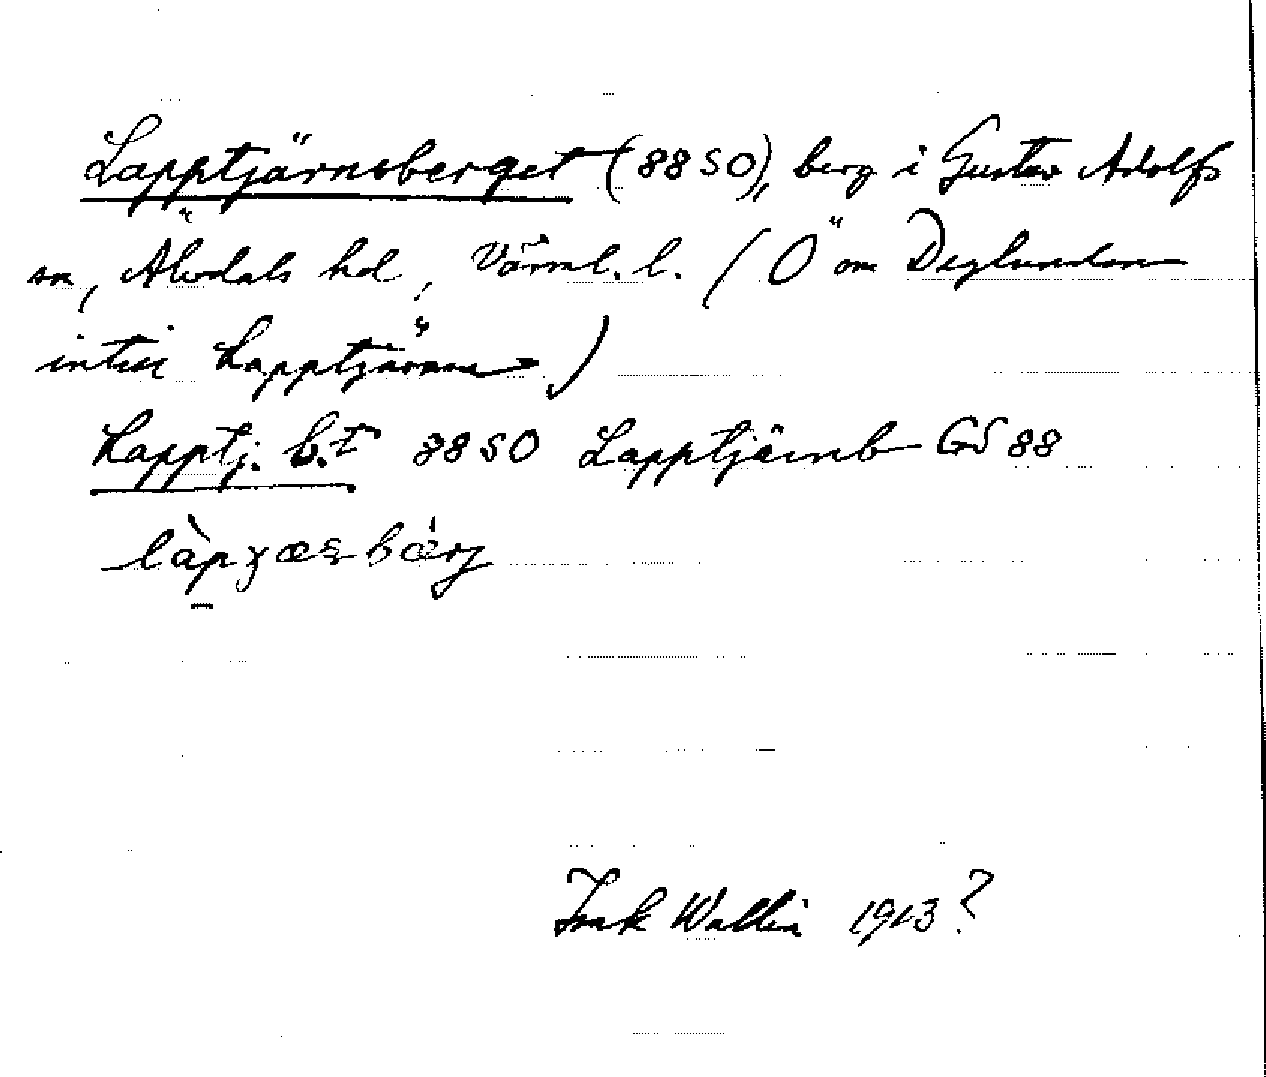 Lapptjärnsberget (88 SO), berg i Gustav Adolfs
sn, Älvdals hd, Värml. l. (Ö om Deglunden
intill Lapptjärnen)
Lapptj. b:t 88 SO Lapptjärnb GS 88
Isak Wallin 1913?